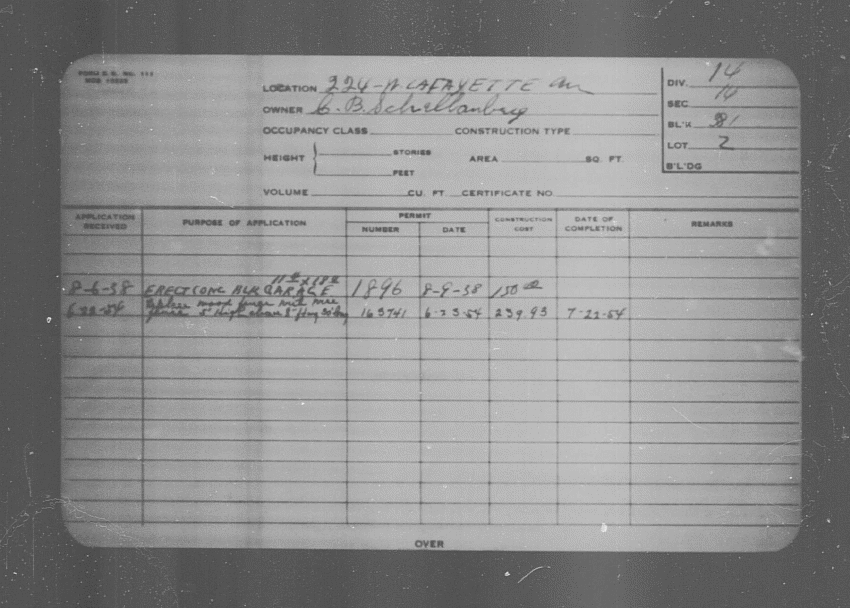 FORM B. D. NO. 111
LOCATION 224-W LAFAYETTE av
OWNER C. B. Schellenberg
OCCUPANCY CLASS CONSTRUCTION TYPE
HEIGHT STORIES FEET AREA SQ. FT.
VOLUME CU. FT. CERTIFICATE NO
DIV. 14
SEC 14
BL'K
LOT 2
B'L'DG
APPLICATION RECEIVED PURPOSE OF APPLICATION PERMIT NUMBER DATE CONSTRUCTION COST DATE OF COMPLETION REMARKS
8-6-38 ERECT CONC BLK GARAGE 1896 8-9-38 150
6-22-54 fence 5' high 163741 6-23-54 239.93 7-22-54
OVER